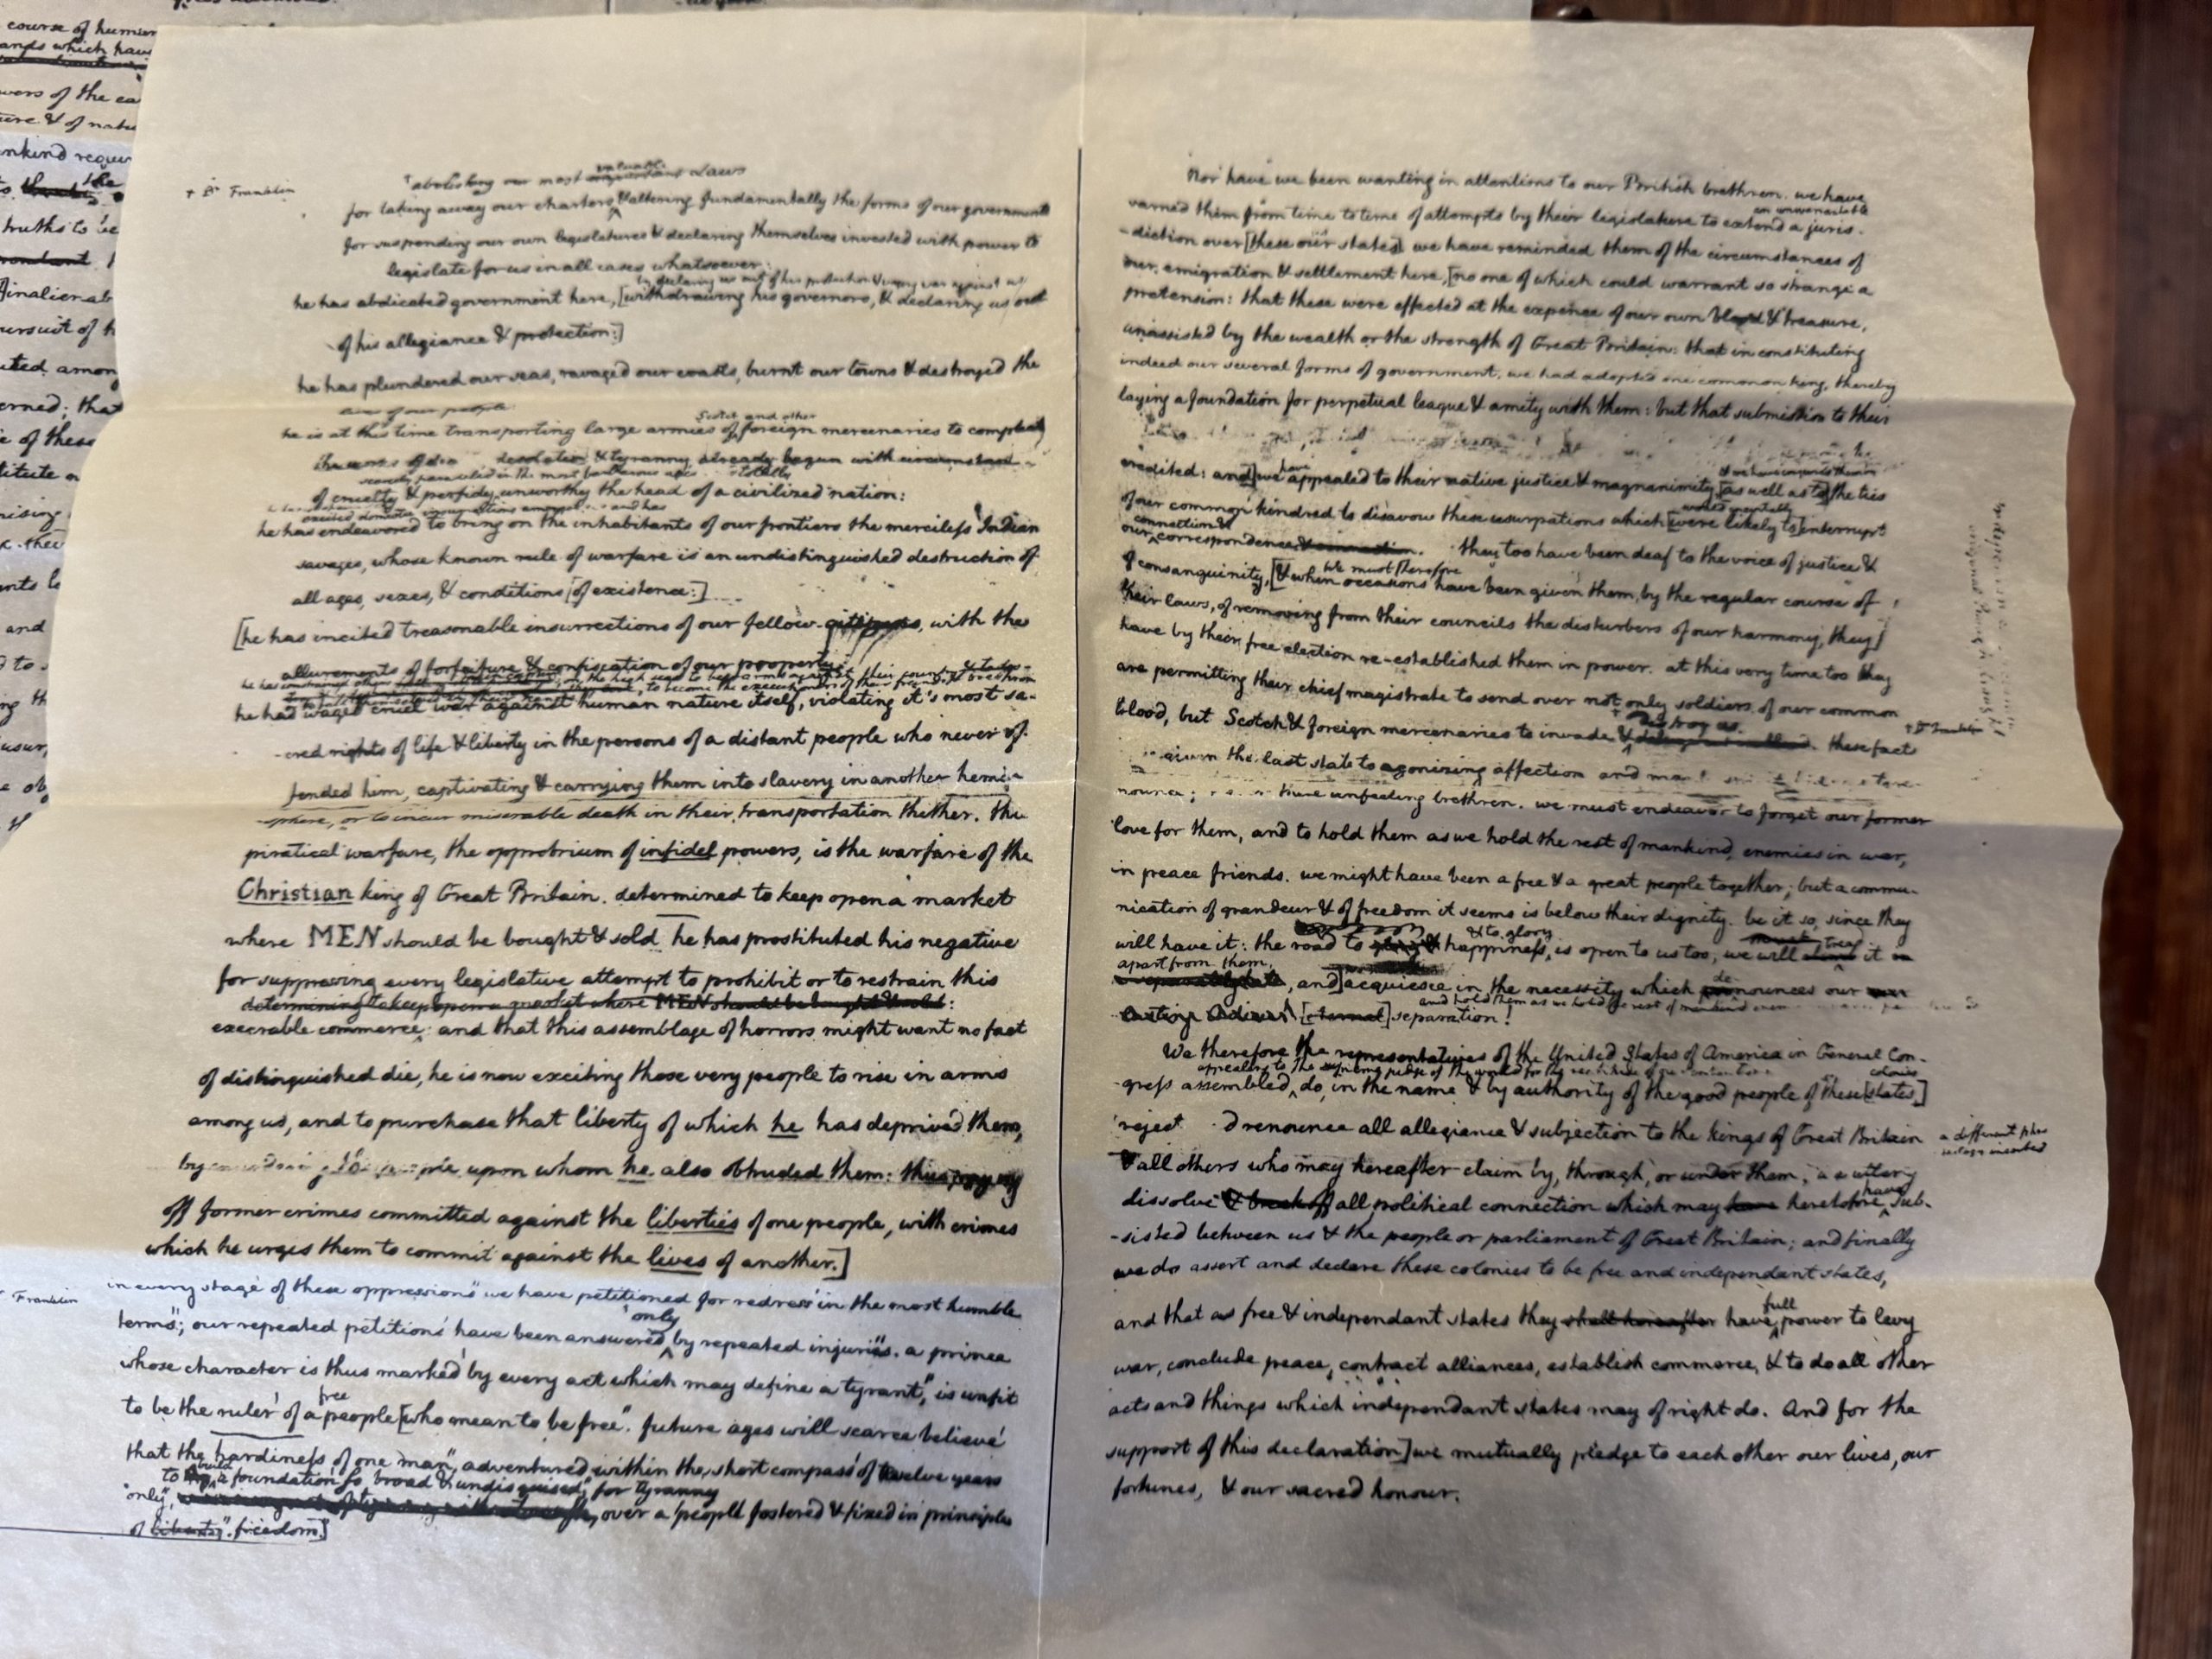 course of human
ands which have
wers of the ea
ture & of natu
ankind requir
the
truths to be
inalienab
ursuit of h
uted among
erned; that
e of these
titute
and
+ Dr Franklin
abolishing our most valuable important Laws
for taking away our charters, & altering fundamentally the forms of our governments
for suspending our own legislatures & declaring themselves invested with power to
legislate for us in all cases whatsoever:
by declaring us out of his protection & waging war against us
he has abdicated government here, [withdrawing his governors, & declaring us out
of his allegiance & protection:]
he has plundered our seas, ravaged our coasts, burnt our towns & destroyed the
lives of our people:
Scotch and other
he is at this time transporting large armies of foreign mercenaries to compleat
the works of desolation & tyranny already begun with circumstan
scarcely paralleled in the most barbarous ages totally
of cruelty & perfidy unworthy the head of a civilized nation:
excited domestic insurrections amongst and has
he has endeavored to bring on the inhabitants of our frontiers the merciless Indian
savages, whose known rule of warfare is an undistinguished destruction of
all ages, sexes, & conditions [of existence:]
[he has incited treasonable insurrections of our fellow-citizens, with the
allurements of forfeiture & confiscation of our property:
he has constrained others on the high seas to bear arms against their country
to become the executioners of their friends & brethren
he has waged cruel war against human nature itself, violating it's most sa-
-cred rights of life & liberty in the persons of a distant people who never of-
fended him, captivating & carrying them into slavery in another hemi-
sphere, or to incur miserable death in their transportation thither. this
piratical warfare, the opprobrium of infidel powers, is the warfare of the
Christian king of Great Britain. determined to keep open a market
where MEN should be bought & sold he has prostituted his negative
for suppressing every legislative attempt to prohibit or to restrain this
determining to keep open a market where MEN should be bought & sold:
execrable commerce: and that this assemblage of horrors might want no fact
of distinguished die, he is now exciting those very people to rise in arms
among us, and to purchase that liberty of which he has deprived them,
by upon whom he also obtruded them: thus paying
off former crimes committed against the liberties of one people, with crimes
which he urges them to commit against the lives of another.]
Franklin
in every stage of these oppressions we have petitioned for redress in the most humble
terms; our repeated petitions have been answered only by repeated injuries. a prince
whose character is thus marked by every act which may define a tyrant, is unfit
to be the ruler of a free people [who mean to be free. future ages will scarce believe
that the hardiness of one man, adventured within the short compass of twelve years
to build a foundation so broad & undisguised, for tyranny
only, over a people fostered & fixed in principles
of liberty freedom.]
Nor have we been wanting in attentions to our British brethren. we have
warned them from time to time of attempts by their legislature to extend a juris-
an unwarrantable
-diction over [these our states] we have reminded them of the circumstances of
our emigration & settlement here, [no one of which could warrant so strange a
pretension: that these were effected at the expence of our own blood & treasure,
unassisted by the wealth or the strength of Great Britain: that in constituting
indeed our several forms of government, we had adopted one common king, thereby
laying a foundation for perpetual league & amity with them: but that submission to their
credited: and] we have appealed to their native justice & magnanimity, [as well as to] the ties
of our common kindred to disavow these usurpations which [were likely to] interrupt
connection &
our correspondence & connection. they too have been deaf to the voice of justice &
We must therefore
of consanguinity, [& when occasions have been given them, by the regular course of
their laws, of removing from their councils the disturbers of our harmony, they
have by their free election re-established them in power. at this very time too they
are permitting their chief magistrate to send over not only soldiers of our common
blood, but Scotch & foreign mercenaries to invade & destroy us. these facts
+ Dr Franklin
given the last stab to agonizing affection and
these unfeeling brethren. we must endeavor to forget our former
love for them, and to hold them as we hold the rest of mankind, enemies in war,
in peace friends. we might have been a free & a great people together; but a commu-
nication of grandeur & of freedom it seems is below their dignity. be it so, since they
will have it: the road to glory & happiness & to glory, is open to us too, we will it
apart from them, and] acquiesce in the necessity which denounces our
and hold them as we hold the rest of mankind
[eternal] separation!
We therefore the representatives of the United States of America in General Con-
appealing to the supreme judge of the world for the
colonies
-gress assembled, do, in the name & by authority of the good people of these [states,]
reject renounce all allegiance & subjection to the kings of Great Britain
a different
& all others who may hereafter claim by, through, or under them;
dissolve & break off all political connection which may have heretofore have sub-
-sisted between us & the people or parliament of Great Britain; and finally
we do assert and declare these colonies to be free and independant states,
and that as free & independant states they shall hereafter have full power to levy
war, conclude peace, contract alliances, establish commerce, & to do all other
acts and things which independant states may of right do. And for the
support of this declaration] we mutually pledge to each other our lives, our
fortunes, & our sacred honour.